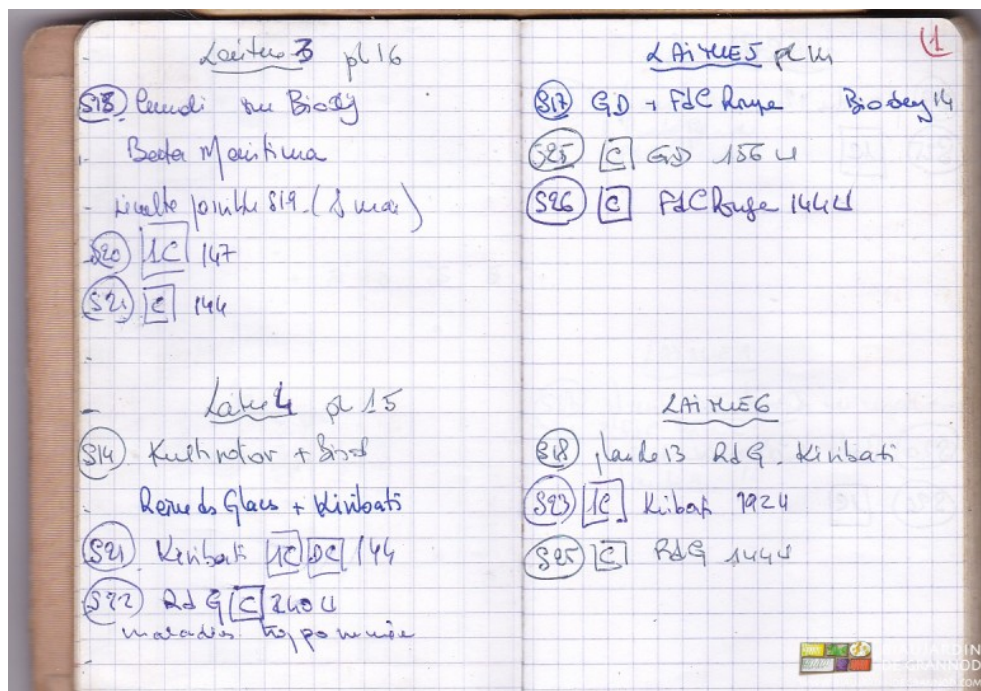 Laitue 3 pl 16
S13 lundi su Biodeg
Beta Maritima
récolte possible S19 (8 mai)
S20 1C 147
S21 C 144
Laitue 4 pl 15
S14 Kultirotor + Biod
Reine des Glaces + Kiribati
S21 Kiribati 1C DC 144
S22 RdG C 240 U
maladies trop pommée
1
LAITUE 5 pl 14
S17 GD + FdC Rouge Biodeg 14
S25 C GD 156 U
S26 C FdC Rouge 144 U
LAITUE 6
S18 planche 13 RdG. Kiribati
S23 1C Kiribati 192 U
S25 C RdG 144 U
JARDIN
DE GRANNOD